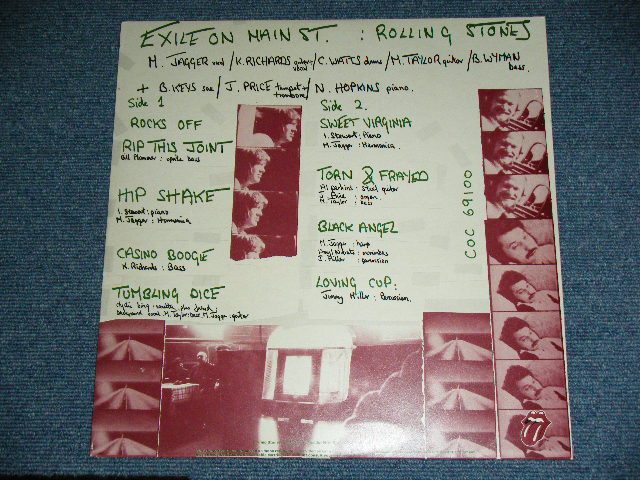 EXILE ON MAIN ST. : ROLLING STONES
M. JAGGER vocal / K. RICHARDS guitar + vocal / C. WATTS drums / M. TAYLOR guitar / B. WYMAN bass.
+ B. KEYS sax / J. PRICE trumpet + trombone / N. HOPKINS piano.
Side 1
ROCKS OFF
RIP THIS JOINT
Bill Plummer : upright bass
HIP SHAKE
I. Stewart : piano
M. Jagger : Harmonica
CASINO BOOGIE
K. Richards : Bass
TUMBLING DICE
M. Taylor : bass M. Jagger : guitar
Side 2.
SWEET VIRGINIA
I. Stewart : Piano
M. Jagger : Harmonica.
TORN & FRAYED
Al Perkins : Steel guitar
J. Price : organ.
M. Taylor : bass
BLACK ANGEL
M. Jagger : harp
J. Miller : percussion
LOVING CUP.
Jimmy Miller : Percussion.
COC 69100